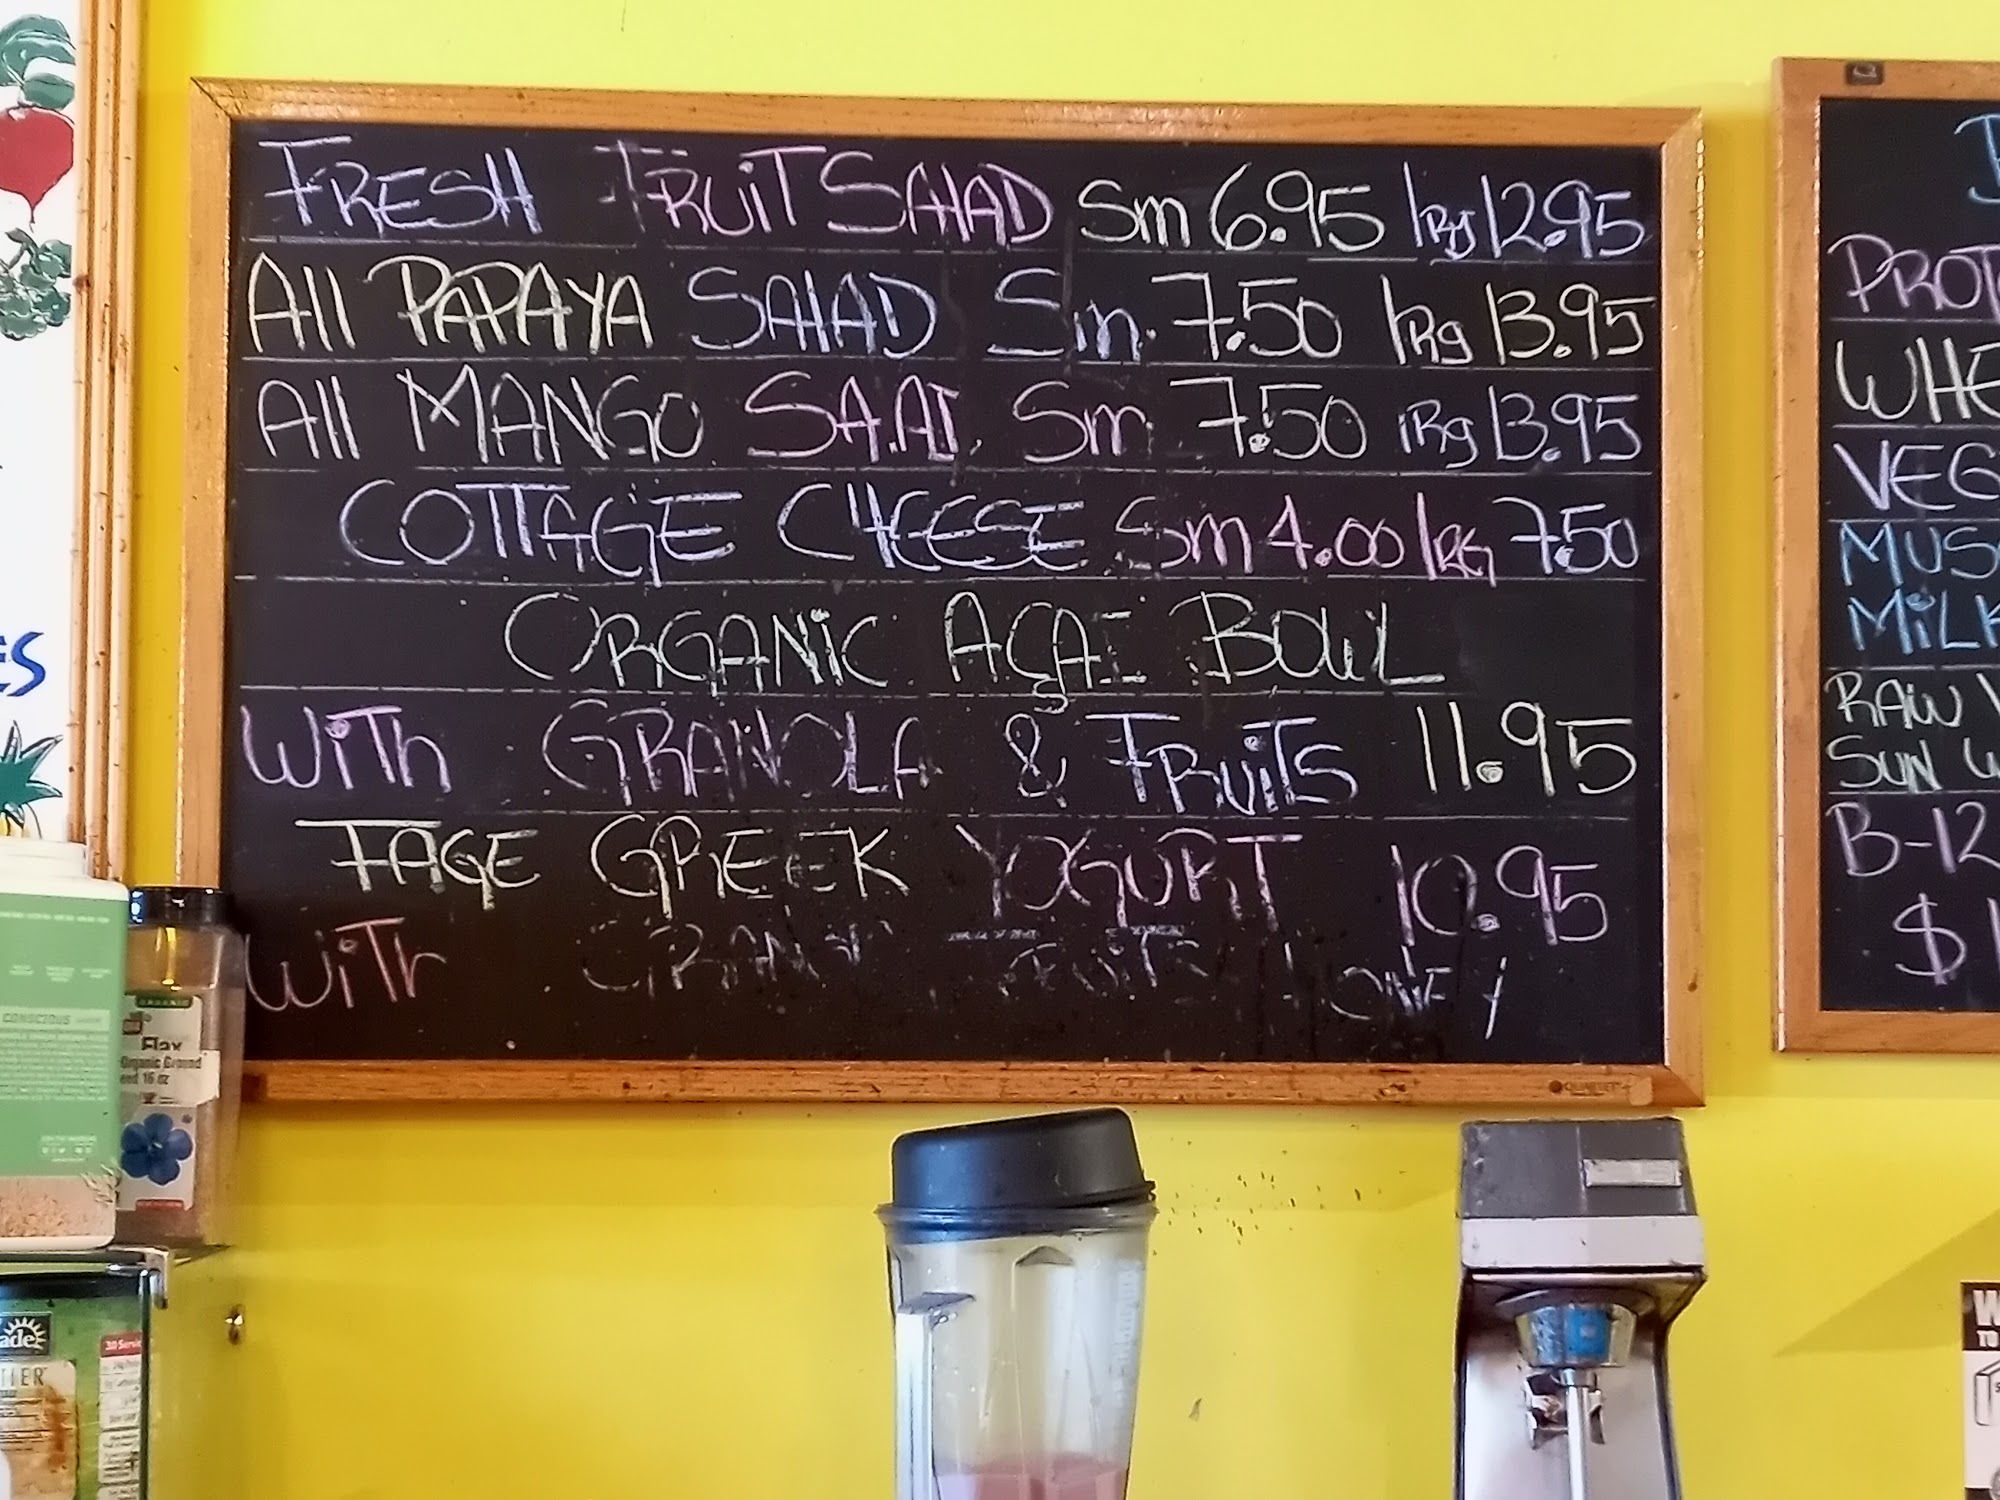 FRESH FRUiT SALAD Sm 6.95 lRg 12.95
All PAPAYA SALAD Sm. 7.50 lRg 13.95
All MANGO Sm 7.50 lRg 13.95
COTTAGE CHEESE Sm 4.00 lRG 7.50
ORGANiC AÇAI BOWL
WiTh GRANOLA & FRUiTS 11.95
FAGE GREEK YOGURT 10.95
WiTh
PROT
WHE
VEG
MUS
MiLK
RAW
SUN W
B-12
$1
ES
CONSCIOUS
ORGANIC
Flax
Organic Ground
eed 16 oz
ade
TIER
W
TO